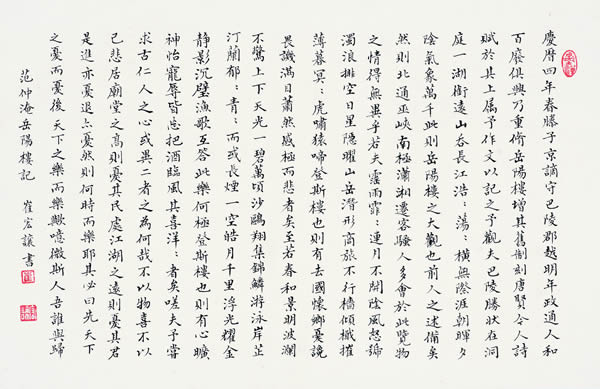 慶曆四年春滕子京謫守巴陵郡越明年政通人和
百廢俱興乃重脩岳陽樓增其舊制刻唐賢今人詩
賦於其上屬予作文以記之予觀夫巴陵勝狀在洞
庭一湖銜遠山吞長江浩:湯:橫無際涯朝暉夕
陰氣象萬千此則岳陽樓之大觀也前人之述備矣
然則北通巫峽南極瀟湘遷客騷人多會於此覽物
之情得無異乎若夫霪雨霏:連月不開陰風怒號
濁浪排空日星隱曜山岳潛形商旅不行檣傾檝摧
薄暮冥:虎嘯猿啼登斯樓也則有去國懷鄉憂讒
畏譏滿目蕭然感極而悲者矣至若春和景明波瀾
不驚上下天光一碧萬頃沙鷗翔集錦鱗游泳岸芷
汀蘭郁:青:而或長煙一空皓月千里浮光耀金
靜影沉璧漁歌互答此樂何極登斯樓也則有心曠
神怡寵辱皆忘把酒臨風其喜洋:者矣嗟夫予嘗
求古仁人之心或異二者之為何哉不以物喜不以
己悲居廟堂之高則憂其民處江湖之遠則憂其君
是進亦憂退亦憂然則何時而樂耶其必曰先天下
之憂而憂後天下之樂而樂歟噫微斯人吾誰與歸
范仲淹岳陽樓記 崔宏讓書